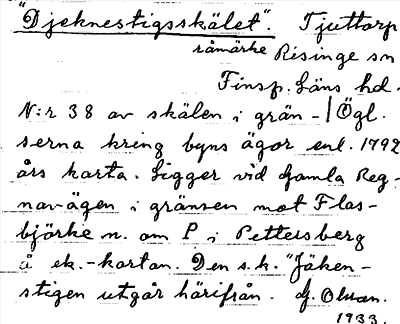 "Djeknestigsskälet". Tjuttorp
råmärke Risinge sn
Finsp. läns hd.
N:r 38 av skälen i grän- | Ögl.
serna kring byns ägor enl. 1792
års karta. Ligger vid Gamla Reg-
navägen i gränsen mot Flas-
björke n. om P i Pettersberg
å ek.-kartan. Den s.k. "Jäken-
stigen utgår härifrån. J. Olsson.
1933.